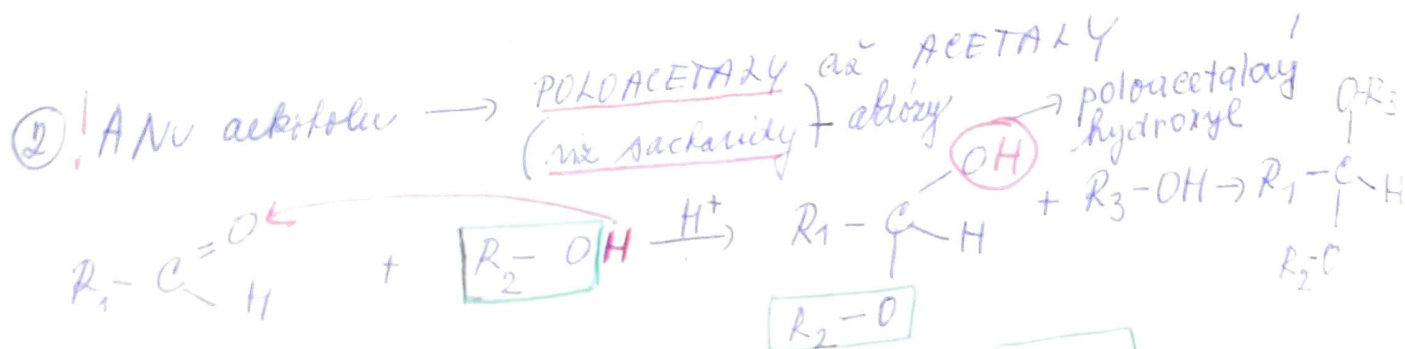 ② ! ANu alkoholu → POLOACETALY až ACETALY
(viz sacharidy) - aldózy
→ poloacetalový hydroxyl
R₁-C=O H + R₂-OH H⁺→ R₁-C-OH H R₂-O + R₃-OH → R₁-C-H O-R₃ R₂-O